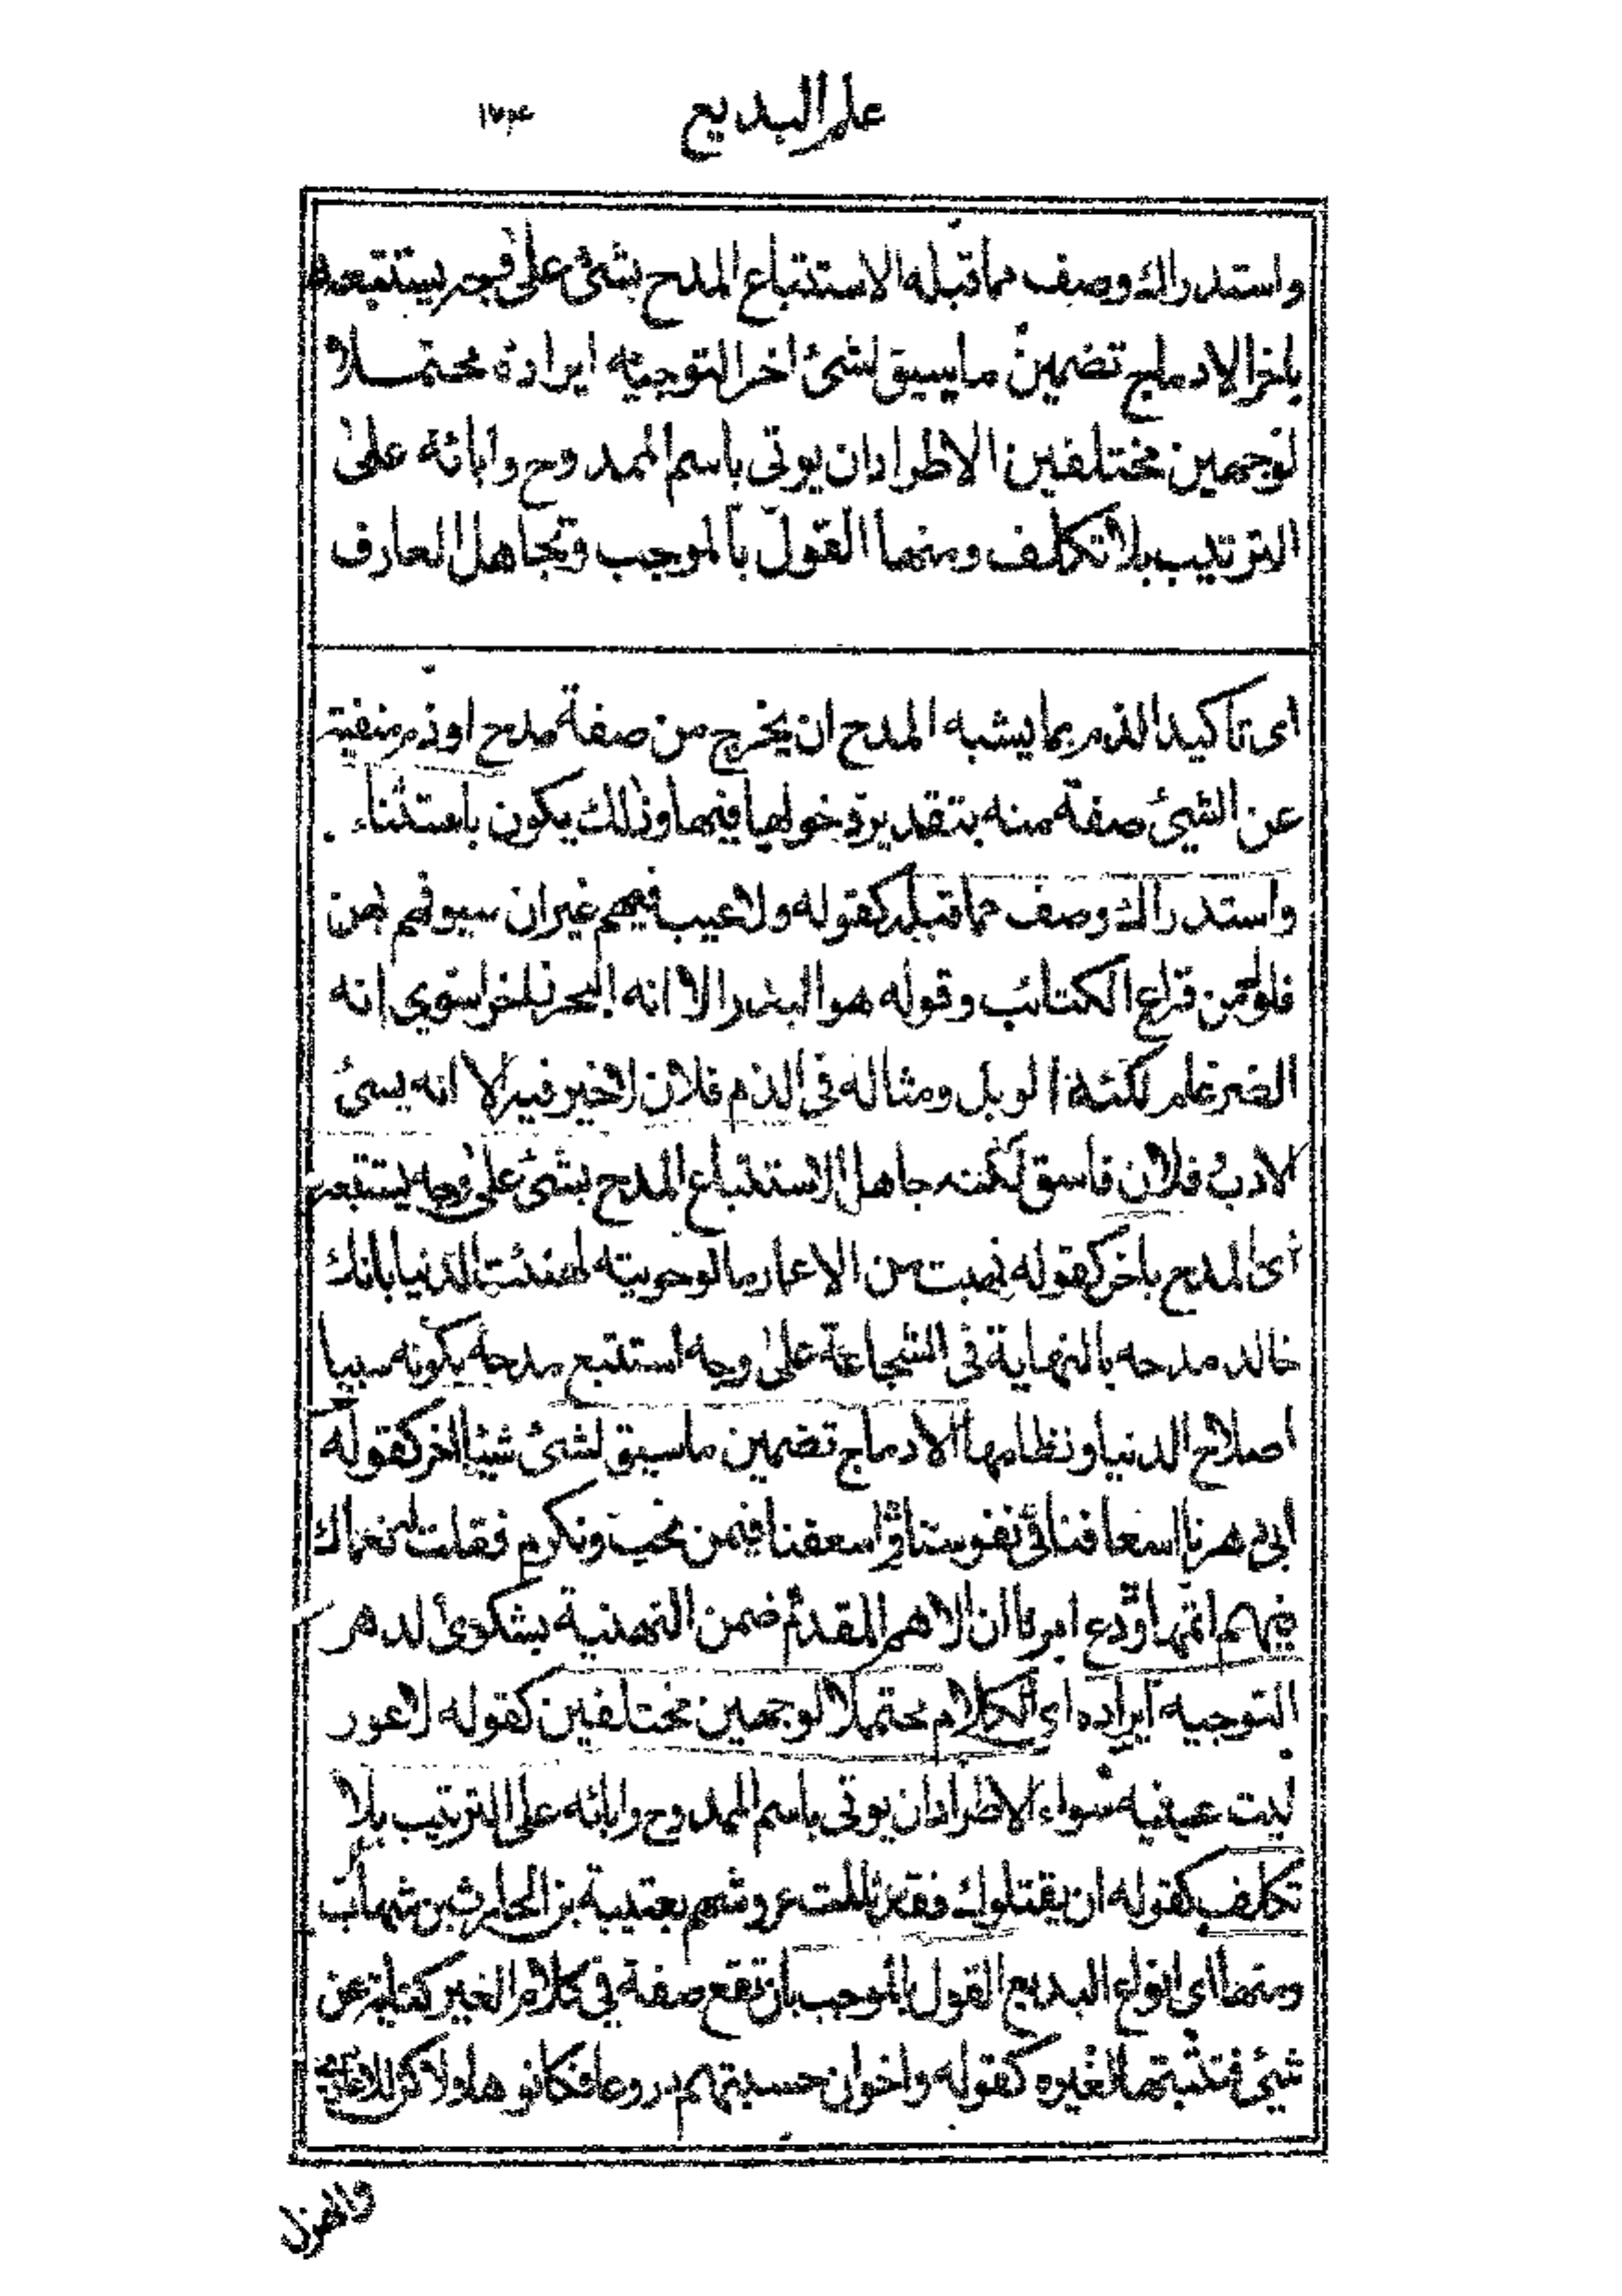 علم البديع
واستدراك وصف مما قبله الاستتباع المدح بشئ على وجه يستتبعه
باخر الادماج تضمين ما سيق لشئ اخر التوجيه ايراده محتملا
لوجهين مختلفين الاطراد ان يوتى باسم الممدوح وابائه على
الترتيب بلا تكلف ومنها القول بالموجب وتجاهل العارف
اى تاكيد الذم بما يشبه المدح ان يخرج من صفة مدح او ذم منفية
عن الشيئ صفة منه بتقدير دخولها فيها وذلك يكون باستثناء
واستدراك وصف مما قبله كقوله ولا عيب فيهم غير ان سيوفهم بهن
فلول من قراع الكتائب وقوله هو البدر الا انه البحر زاخرا سوى انه
الضرغام لكنه الوبل ومثاله فى الذم فلان لا خير فيه الا انه يسئ
الادب فلان فاسق لكنه جاهل الاستتباع المدح بشئ على وجه يستتبعه
اى المدح باخر كقوله نهبت من الاعمار ما لو حويته لهنئت الدنيا بانك
خالد مدحه بالنهاية فى الشجاعة على وجه استتبع مدحه بكونه سببا
اصلاح الدنيا ونظامها الادماج تضمين ما سيق لشئ شيئا اخر كقوله
ابى دهرنا اسعافنا فى نفوسنا واسعفنا فيمن نحب ونكرم فقلت له نعماك
فيهم اتمها ودع امرنا ان الاهم المقدم ضمن التهنية بشكوى الدهر
التوجيه ايراده اى الكلام محتملا لوجهين مختلفين كقوله لاعور
ليت عينيه سواء الاطراد ان يوتى باسم الممدوح وابائه على الترتيب بلا
تكلف كقوله ان يقتلوك فقد ثللت عروشهم بعتيبة بن الحارث بن شهاب
ومنها اى انواع البديع القول بالموجب بان تقع صفة فى كلام الغير كناية عن
شيئ فتثبتها لغيره كقوله واخوان حسبتهم دروعا فكانوها ولكن للاعادى
والهزل